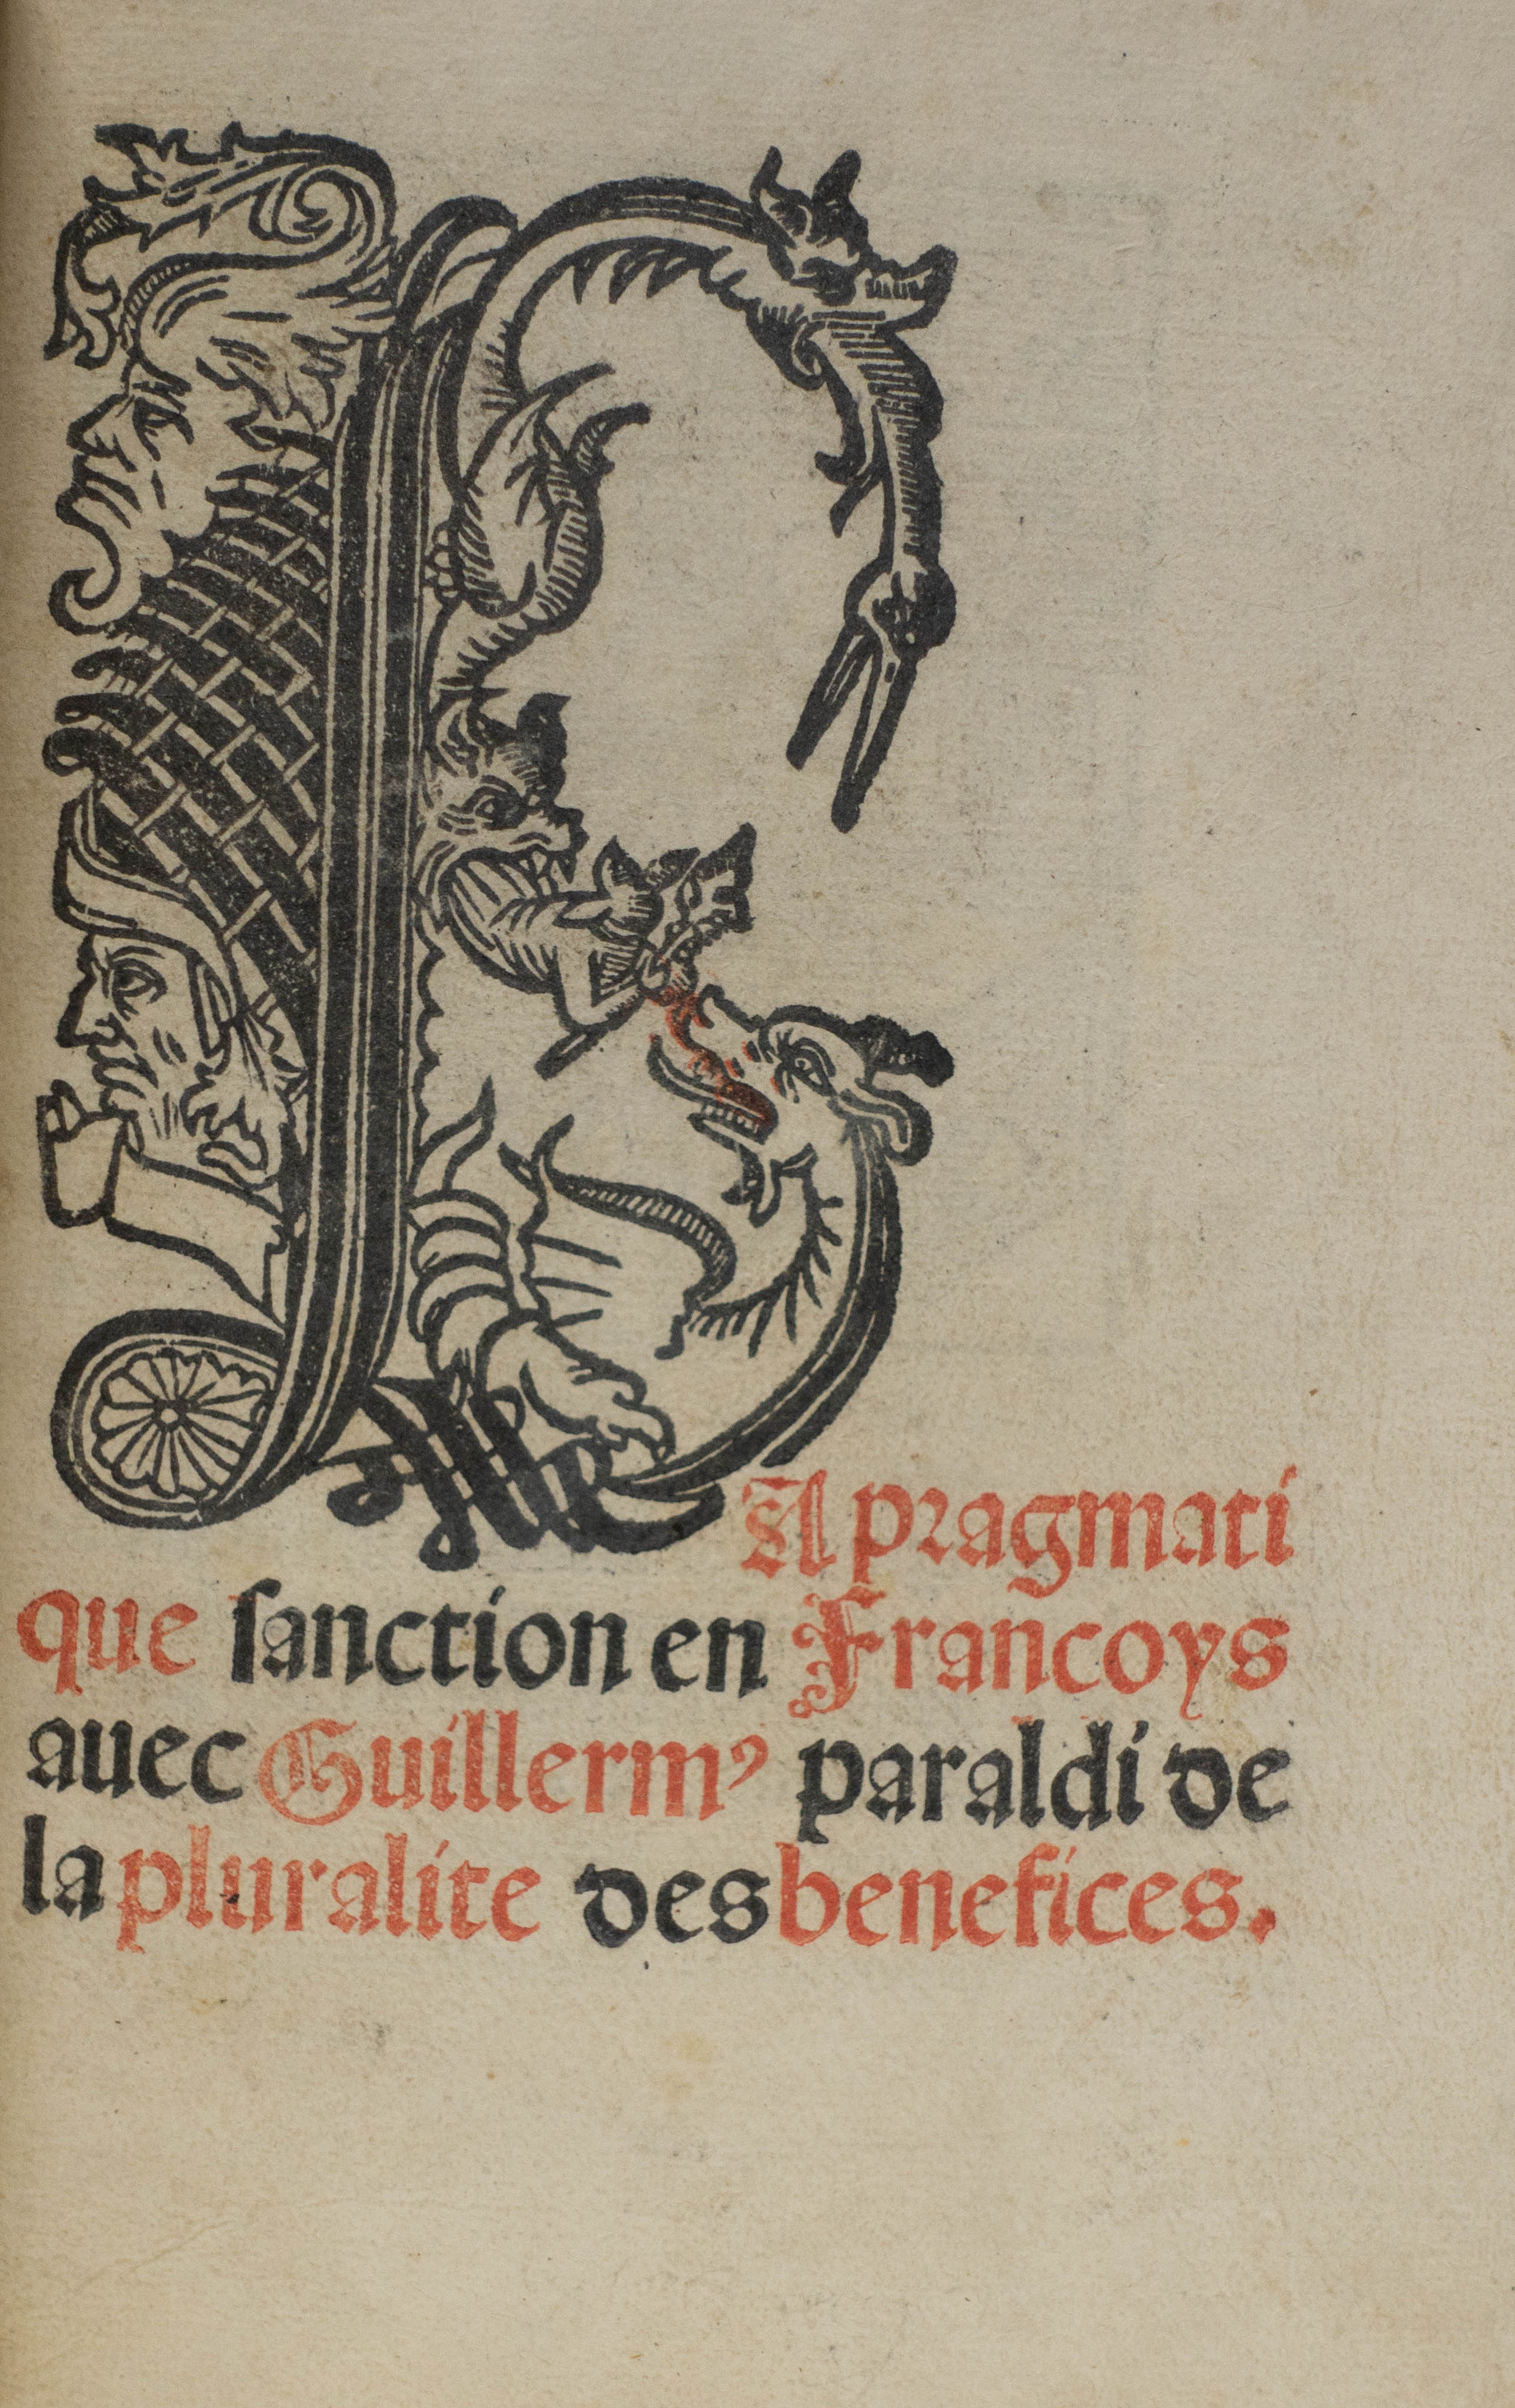 LA pragmati
que sanction en Francoys
auec Guillermꝰ paraldi de
la pluralite des benefices.